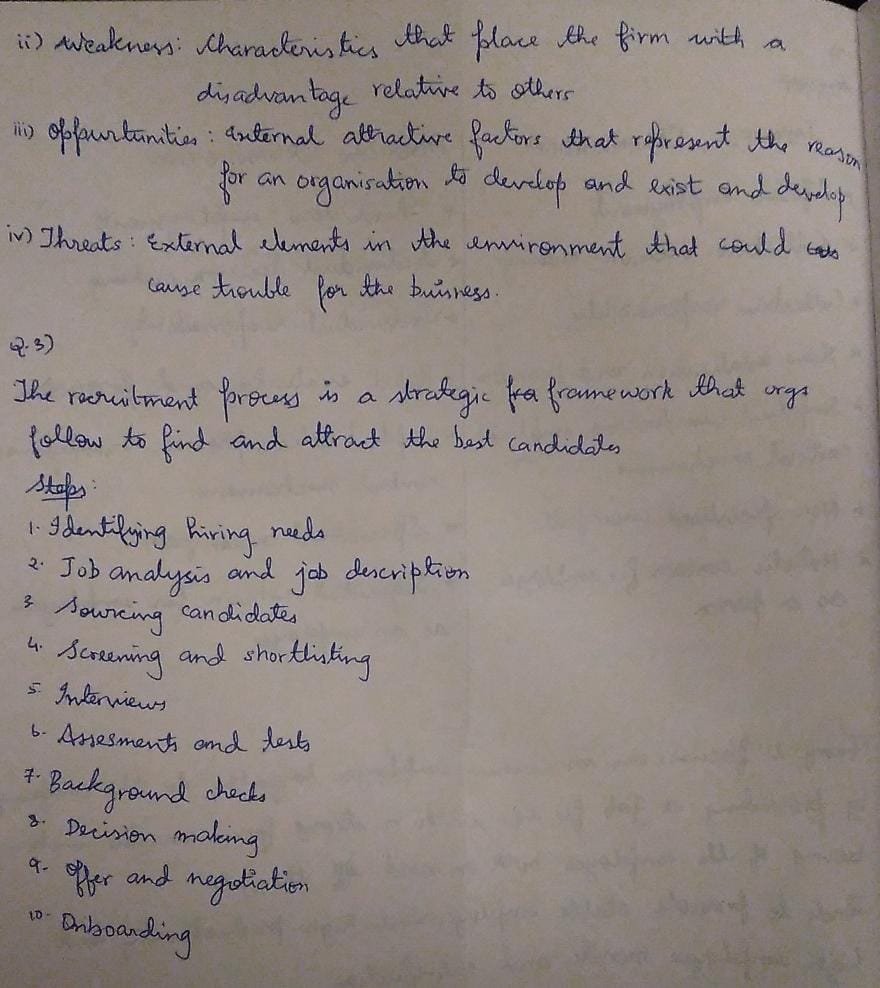 ii) Weakness: Characteristics that place the firm with a
disadvantage relative to others
iii) Oppourtunities: External attractive factors that represent the reason
for an organisation to develop and exist and develop
iv) Threats: External elements in the environment that could
cause trouble for the buisness.
Q.3)
The recruitment process is a strategic fra framework that orgs
follow to find and attract the best candidates
Steps:
1. Identifying hiring needs
2. Job analysis and job description
3 Sourcing candidates
4. Screening and shortlisting
5. Interviews
6. Assesments and tests
7. Background checks
8. Decision making
9. Offer and negotiation
10. Onboarding